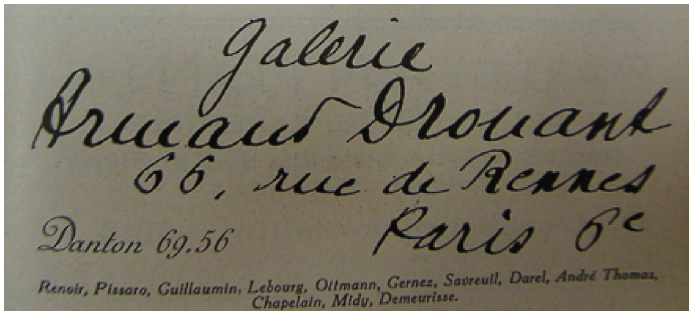 Galerie
Armand Drouant
66, rue de Rennes
Danton 69.56
Paris 6e
Renoir, Pissaro, Guillaumin, Lebourg, Ottmann, Gernez, Savreuil, Darel, André Thomas,
Chapelain, Midy, Demeurisse.